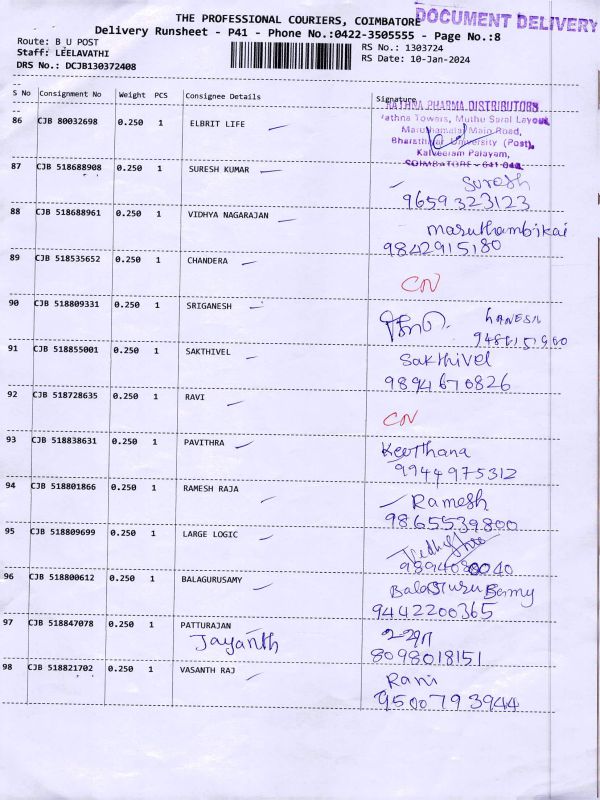 THE PROFESSIONAL COURIERS, COIMBATORE
DOCUMENT DELIVERY
Delivery Runsheet - P41 - Phone No.:0422-3505555 - Page No.:8
Route: B U POST
RS No.: 1303724
Staff: LEELAVATHI
RS Date: 10-Jan-2024
DRS No.: DCJB130372408
S No Consignment No Weight PCS Consignee Details Signature
86 CJB 80032698 0.250 1 ELBRIT LIFE
RATHNA PHARMA DISTRIBUTORS
Rathna Towers, Muthu Saral Layout,
Maruthamalai Main Road,
Bharathiar University (Post),
Kalveeram Palayam,
COIMBATORE - 641 046.
87 CJB 518688908 0.250 1 SURESH KUMAR
Suresh
9659323123
88 CJB 518688961 0.250 1 VIDHYA NAGARAJAN
Maruthambikai
9842915180
89 CJB 518535652 0.250 1 CHANDERA
CN
90 CJB 518809331 0.250 1 SRIGANESH
91 CJB 518855001 0.250 1 SAKTHIVEL
Sakthivel
9894670826
92 CJB 518728635 0.250 1 RAVI
CN
93 CJB 518838631 0.250 1 PAVITHRA
Keerthana
9944975312
94 CJB 518801866 0.250 1 RAMESH RAJA
Ramesh
9865539800
95 CJB 518809699 0.250 1 LARGE LOGIC
96 CJB 518800612 0.250 1 BALAGURUSAMY
Balagurusamy
9442200365
97 CJB 518847078 0.250 1 PATTURAJAN
Jayanth
8098018151
98 CJB 518821702 0.250 1 VASANTH RAJ
Rani
9500793944